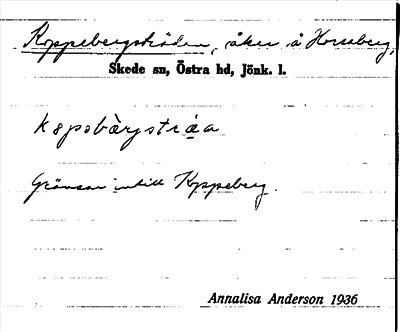 Koppebergsträden, åker å Horseberg,
Skede sn, Östra hd, Jönk. l.
kɞpəbærjstráa
Gränsar intill Koppeberg.
Annalisa Anderson 1936